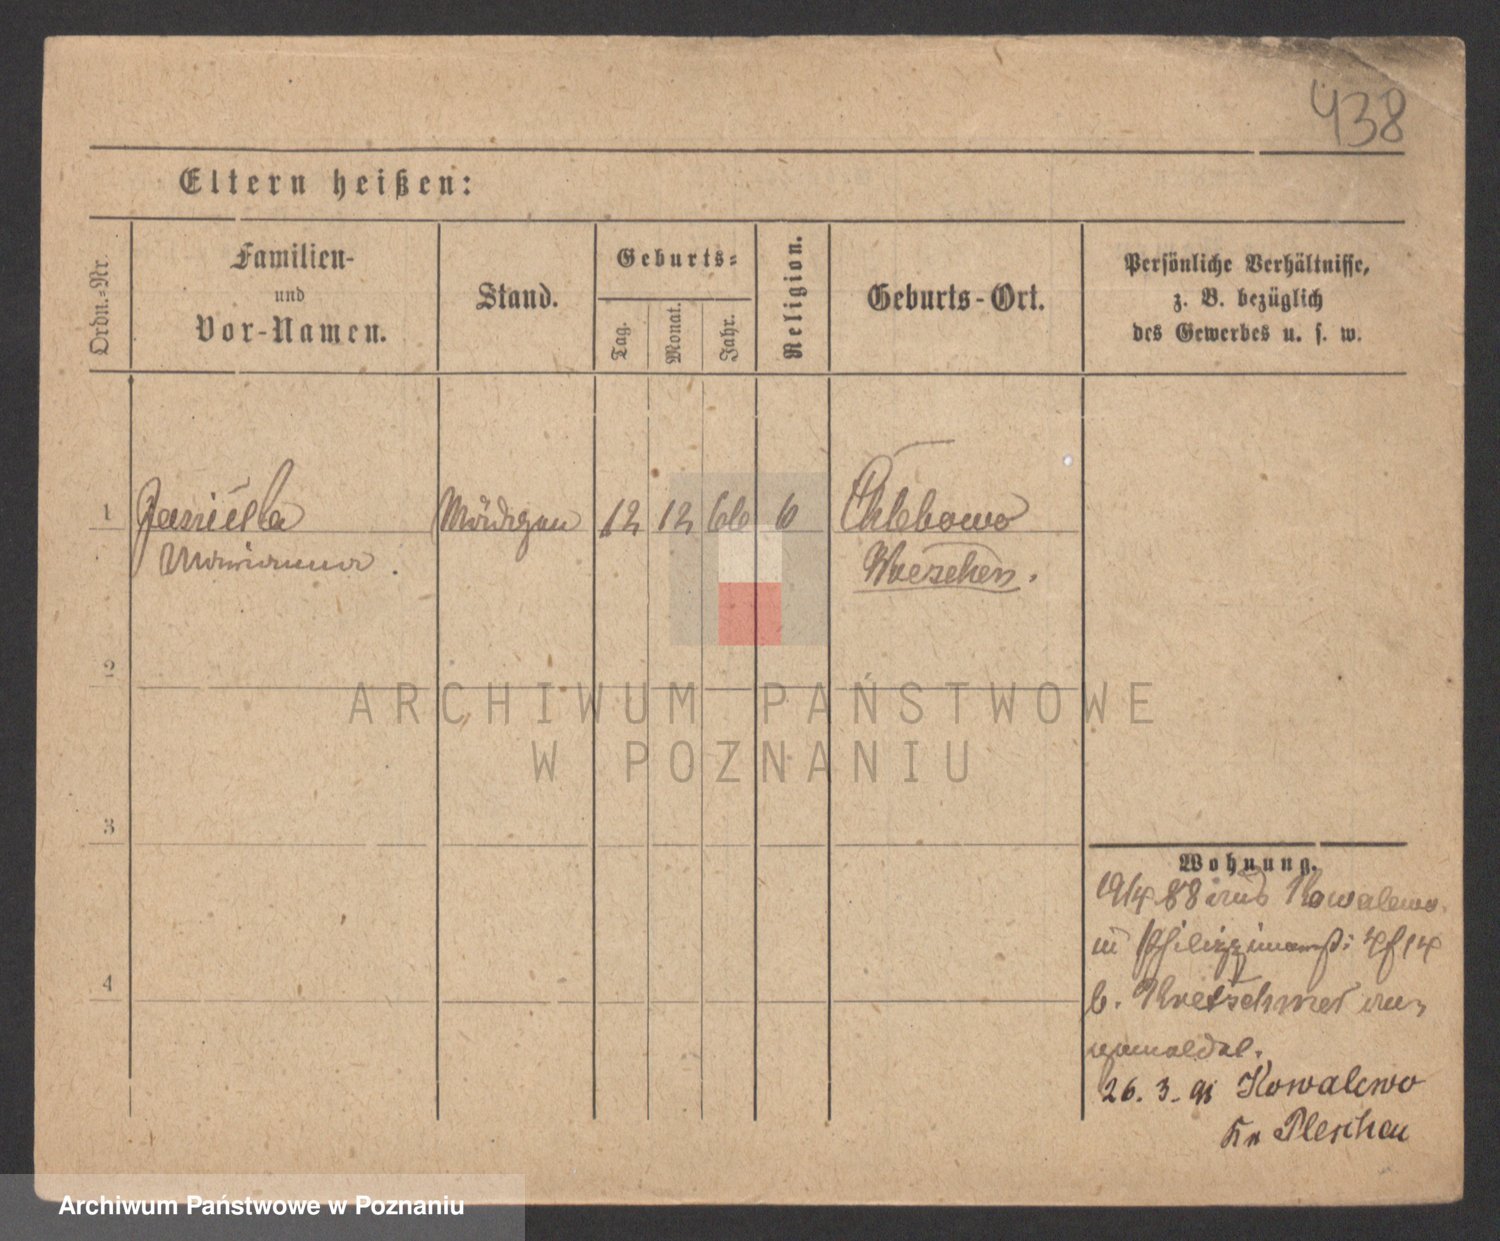 438
Eltern heißen:
Ordn.-Nr.
Familien-
und
Vor-Namen.
Stand.
Geburts-
Tag.
Monat.
Jahr.
Religion.
Geburts-Ort.
Persönliche Verhältnisse,
z. B. bezüglich
des Gewerbes u. s. w.
1
12 12 66
Chlebowo
Marianna
Wreschen.
2
ARCHIWUM PAŃSTWOWE
W POZNANIU
3
Wohnung.
19/4 88 aus Kowalewo
in 14
b. Kretschmer
4
26. 3. 91 Kowalewo
Kr Pleschen
Archiwum Państwowe w Poznaniu